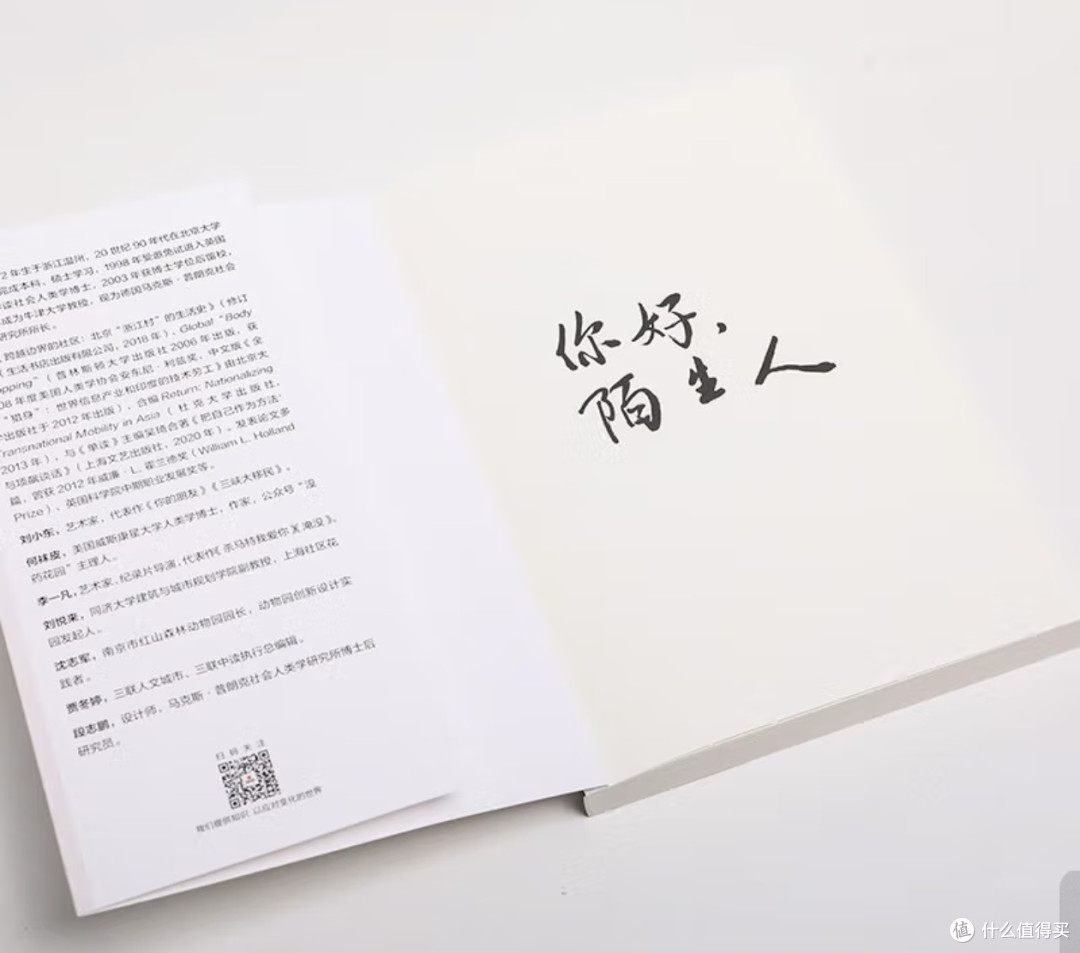 2年生于浙江温州，20世纪90年代在北京大学
完成本科，硕士学习，1998年受邀免试进入英国
读社会人类学博士，2003年获博士学位后留校，
成为牛津大学教授，现为德国马克斯·普朗克社会
研究所所长。
跨越边界的社区：北京“浙江村”的生活史》（修订
生活书店出版有限公司，2018年）、Global “Body
pping”（普林斯顿大学出版社2006年出版，获
08年度美国人类学协会安东尼·利兹奖，中文版《全
“猎身”：世界信息产业和印度的技术劳工》由北京大
学出版社于2012年出版），合编Return: Nationalizing
Transnational Mobility in Asia（杜克大学出版社，
2013年），与《单读》主编吴琦合著《把自己作为方法：
与项飙谈话》（上海文艺出版社，2020年）。发表论文多
篇，曾获2012年威廉·L. 霍兰德奖（William L. Holland
Prize）、英国科学院中期职业发展奖等。
刘小东，艺术家，代表作《你的朋友》《三峡大移民》。
何袜皮，美国威斯康星大学人类学博士，作家，公众号“没
药花园”主理人。
李一凡，艺术家、纪录片导演，代表作《杀马特我爱你》《淹没》。
刘悦来，同济大学建筑与城市规划学院副教授，上海社区花
园发起人。
沈志军，南京市红山森林动物园园长，动物园创新设计实
践者。
贾冬婷，三联人文城市、三联中读执行总编辑。
段志鹏，设计师，马克斯·普朗克社会人类学研究所博士后
研究员。
扫码关注
我们提供知识 以应对变化的世界
你好，
陌生人
值 什么值得买